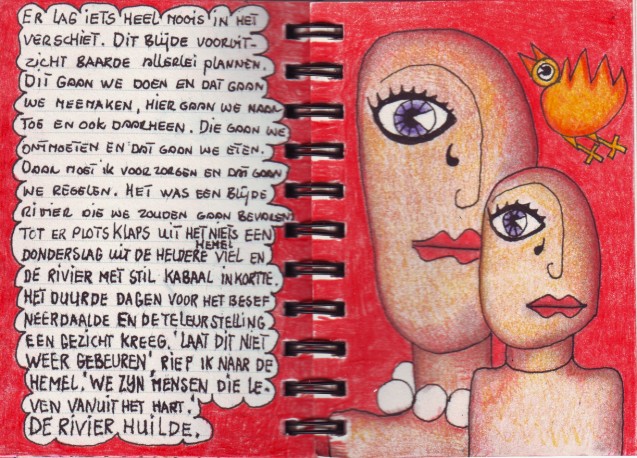 ER LAG IETS HEEL MOOIS IN HET
VERSCHIET. DIT BLIJDE VOORUIT-
ZICHT BAARDE ALLERLEI PLANNEN.
DIT GAAN WE DOEN EN DAT GAAN
WE MEEMAKEN, HIER GAAN WE NAAR
TOE EN OOK DAARHEEN. DIE GAAN WE
ONTMOETEN EN DAT GAAN WE ETEN.
DAAR MOET IK VOOR ZORGEN EN DAT GAAN
WE REGELEN. HET WAS EEN BLIJDE
RIVIER DIE WE ZOUDEN GAAN BEVAREN
TOT ER PLOTSKLAPS UIT HET NIETS EEN
DONDERSLAG UIT DE HELDERE HEMEL VIEL EN
DE RIVIER MET STIL KABAAL INKORTTE.
HET DUURDE DAGEN VOOR HET BESEF
NEERDAALDE EN DE TELEURSTELLING
EEN GEZICHT KREEG. 'LAAT DIT NIET
WEER GEBEUREN', RIEP IK NAAR DE
HEMEL. 'WE ZIJN MENSEN DIE LE-
VEN VANUIT HET HART.'
DE RIVIER HUILDE.